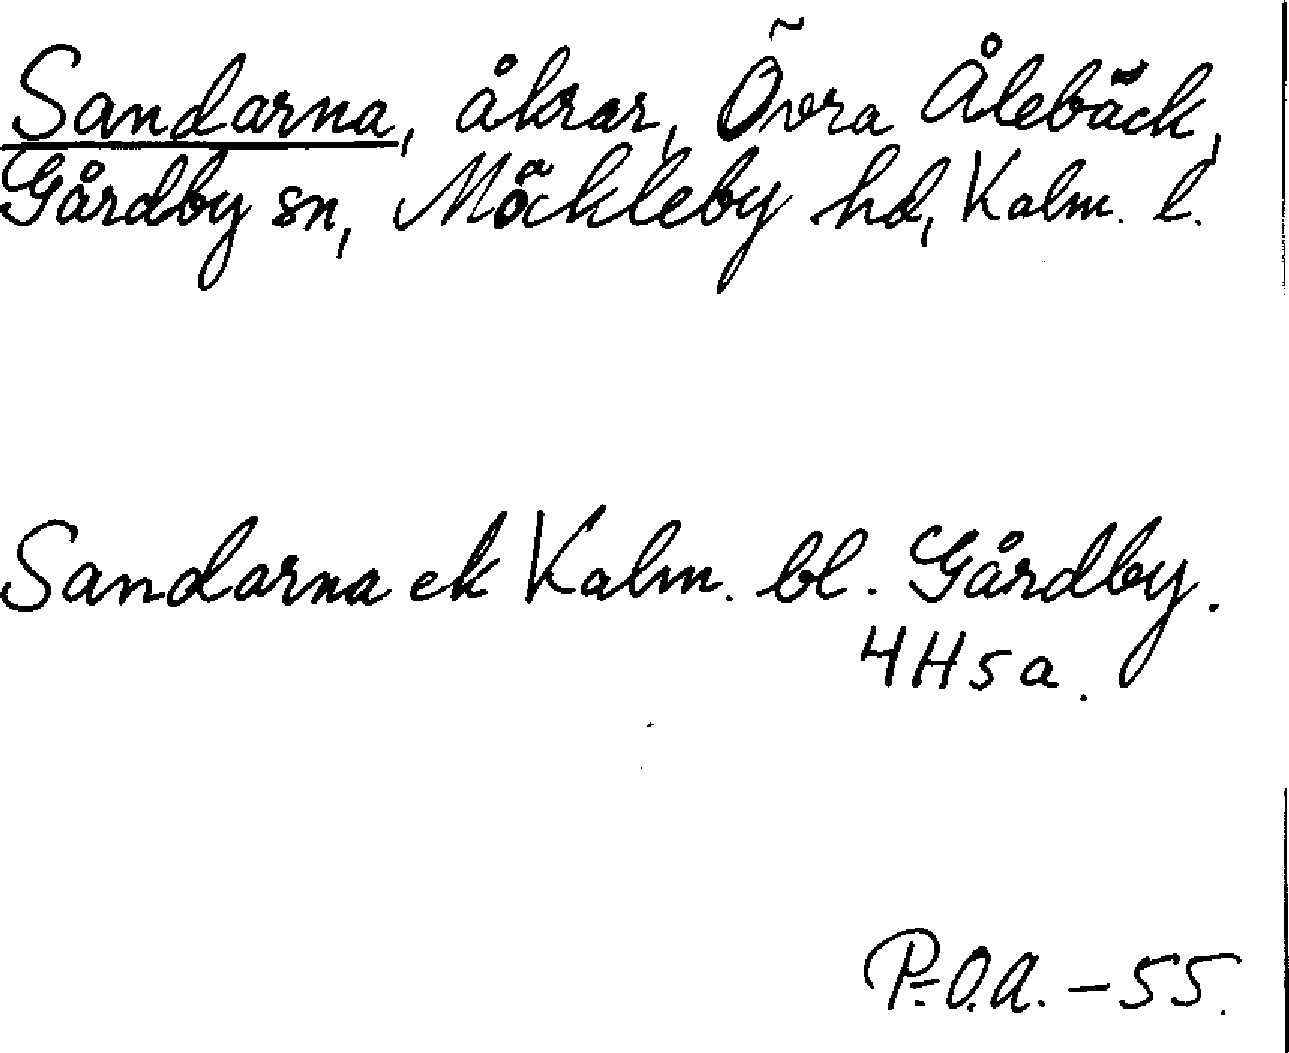 Sandarna, åkrar, Övra Ålebäck,
Gårdby sn, Möckleby hd, Kalm. l.
Sandarna ek Kalm. bl. Gårdby.
4H5a.
P-O.A. - 55.